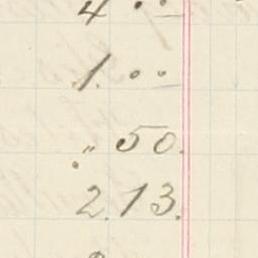 4 ••
1. ••
„ 50.
2.13.